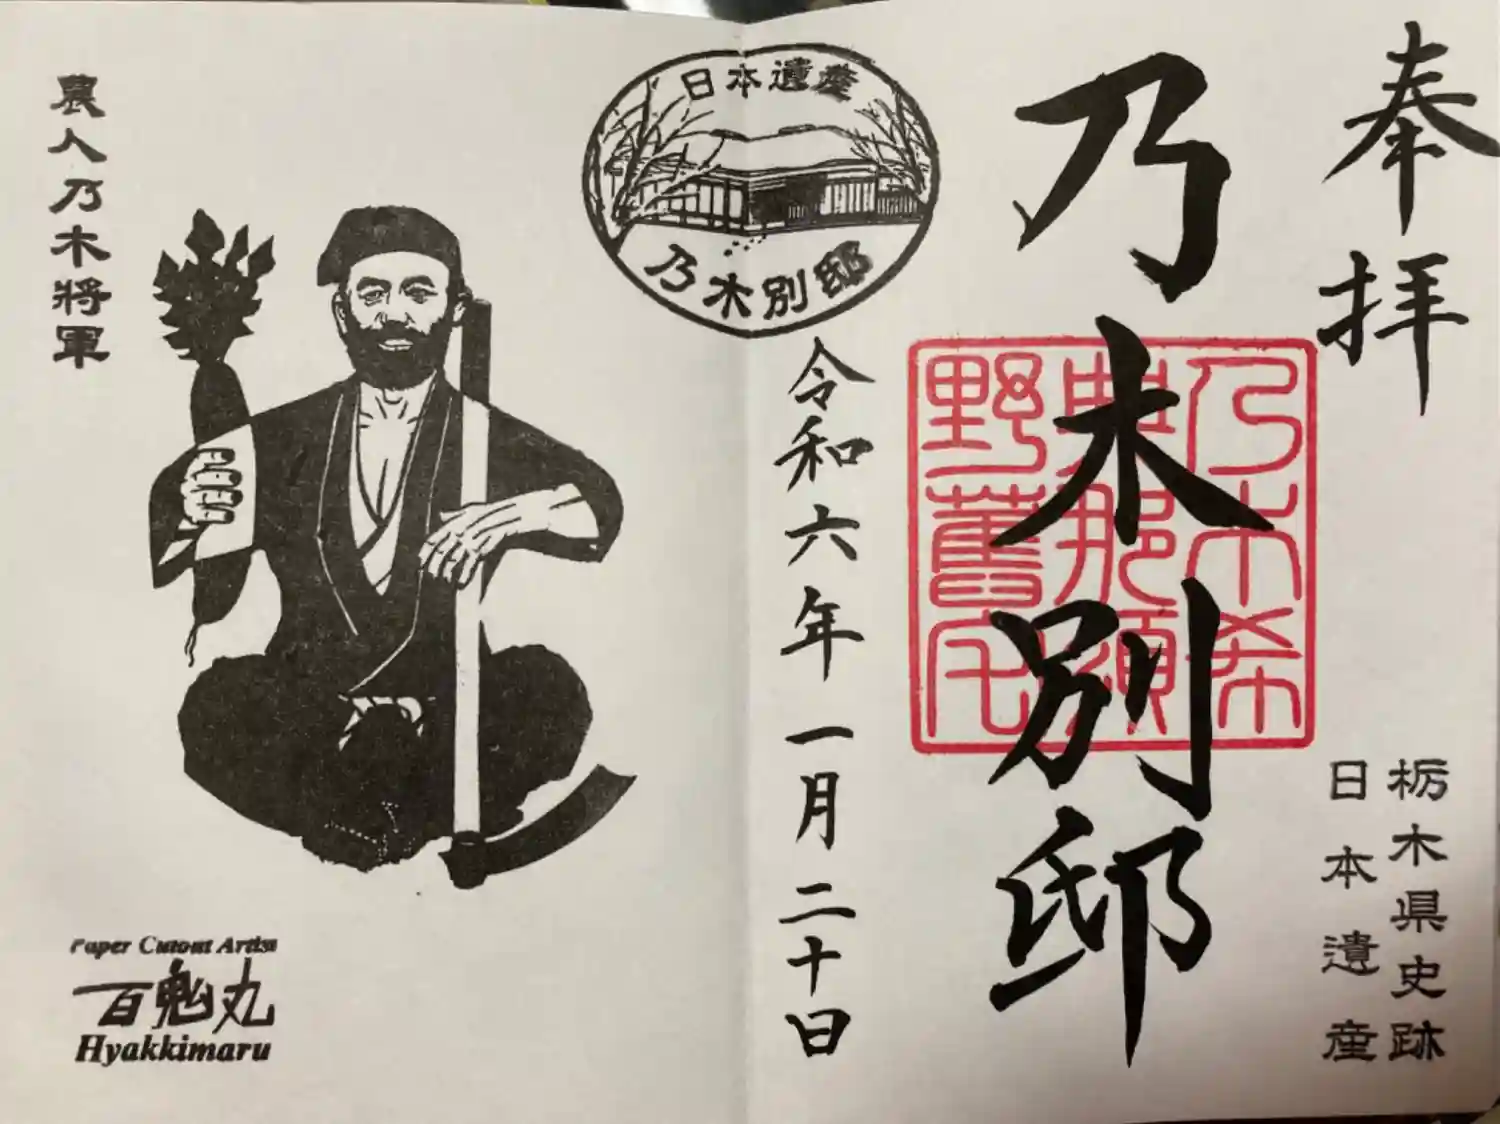 奉拝
乃木別邸
栃木県史跡
日本遺産
乃木希
典那須
野舊宅
日本遺産
乃木別邸
令和六年一月二十日
農人乃木将軍
Paper Cutout Artist
百鬼丸
Hyakkimaru